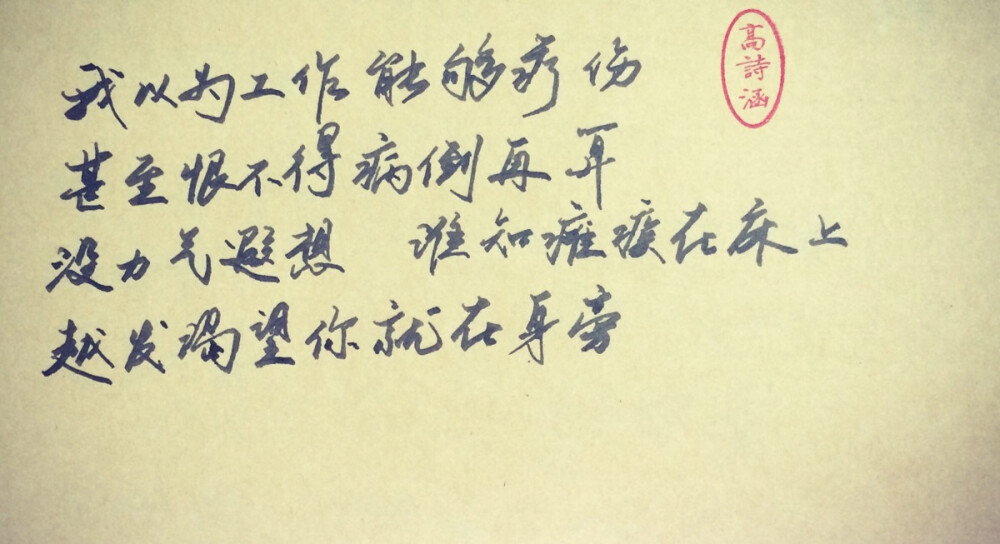 我以为工作能够疗伤
甚至恨不得病倒再
没力气遐想 谁知瘫痪在床上
越发渴望你就在身旁
高詩涵